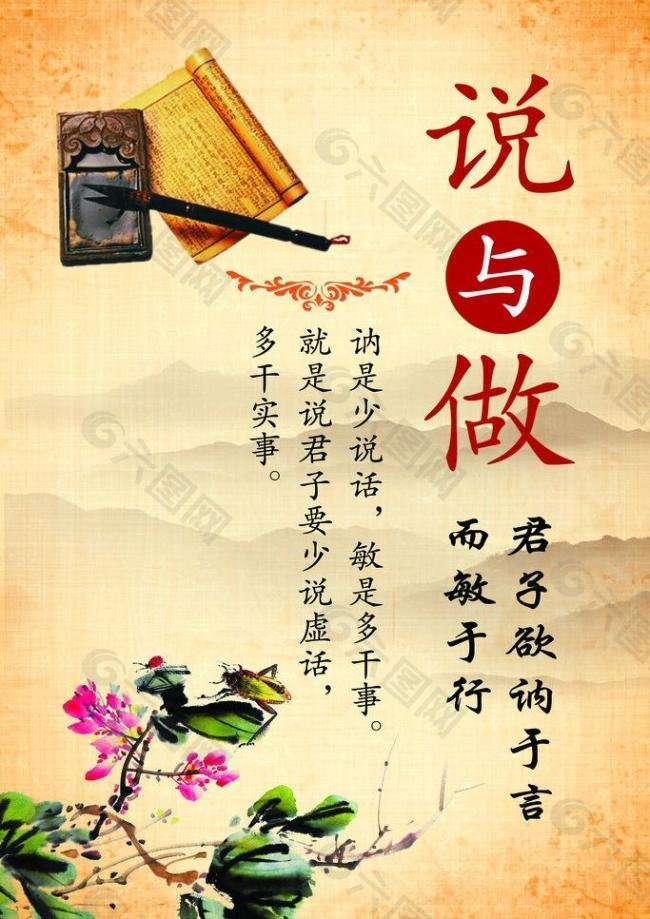 说与做
君子欲讷于言
而敏于行
讷是少说话，敏是多干事。
就是说君子要少说虚话，
多干实事。
六图网